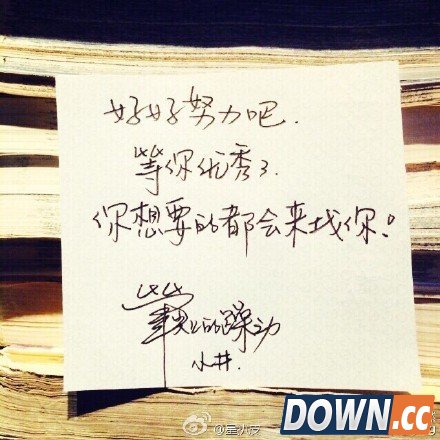 好好努力吧.
等你优秀了.
你想要的都会来找你!
的躁动
小井.
DOWN.cc